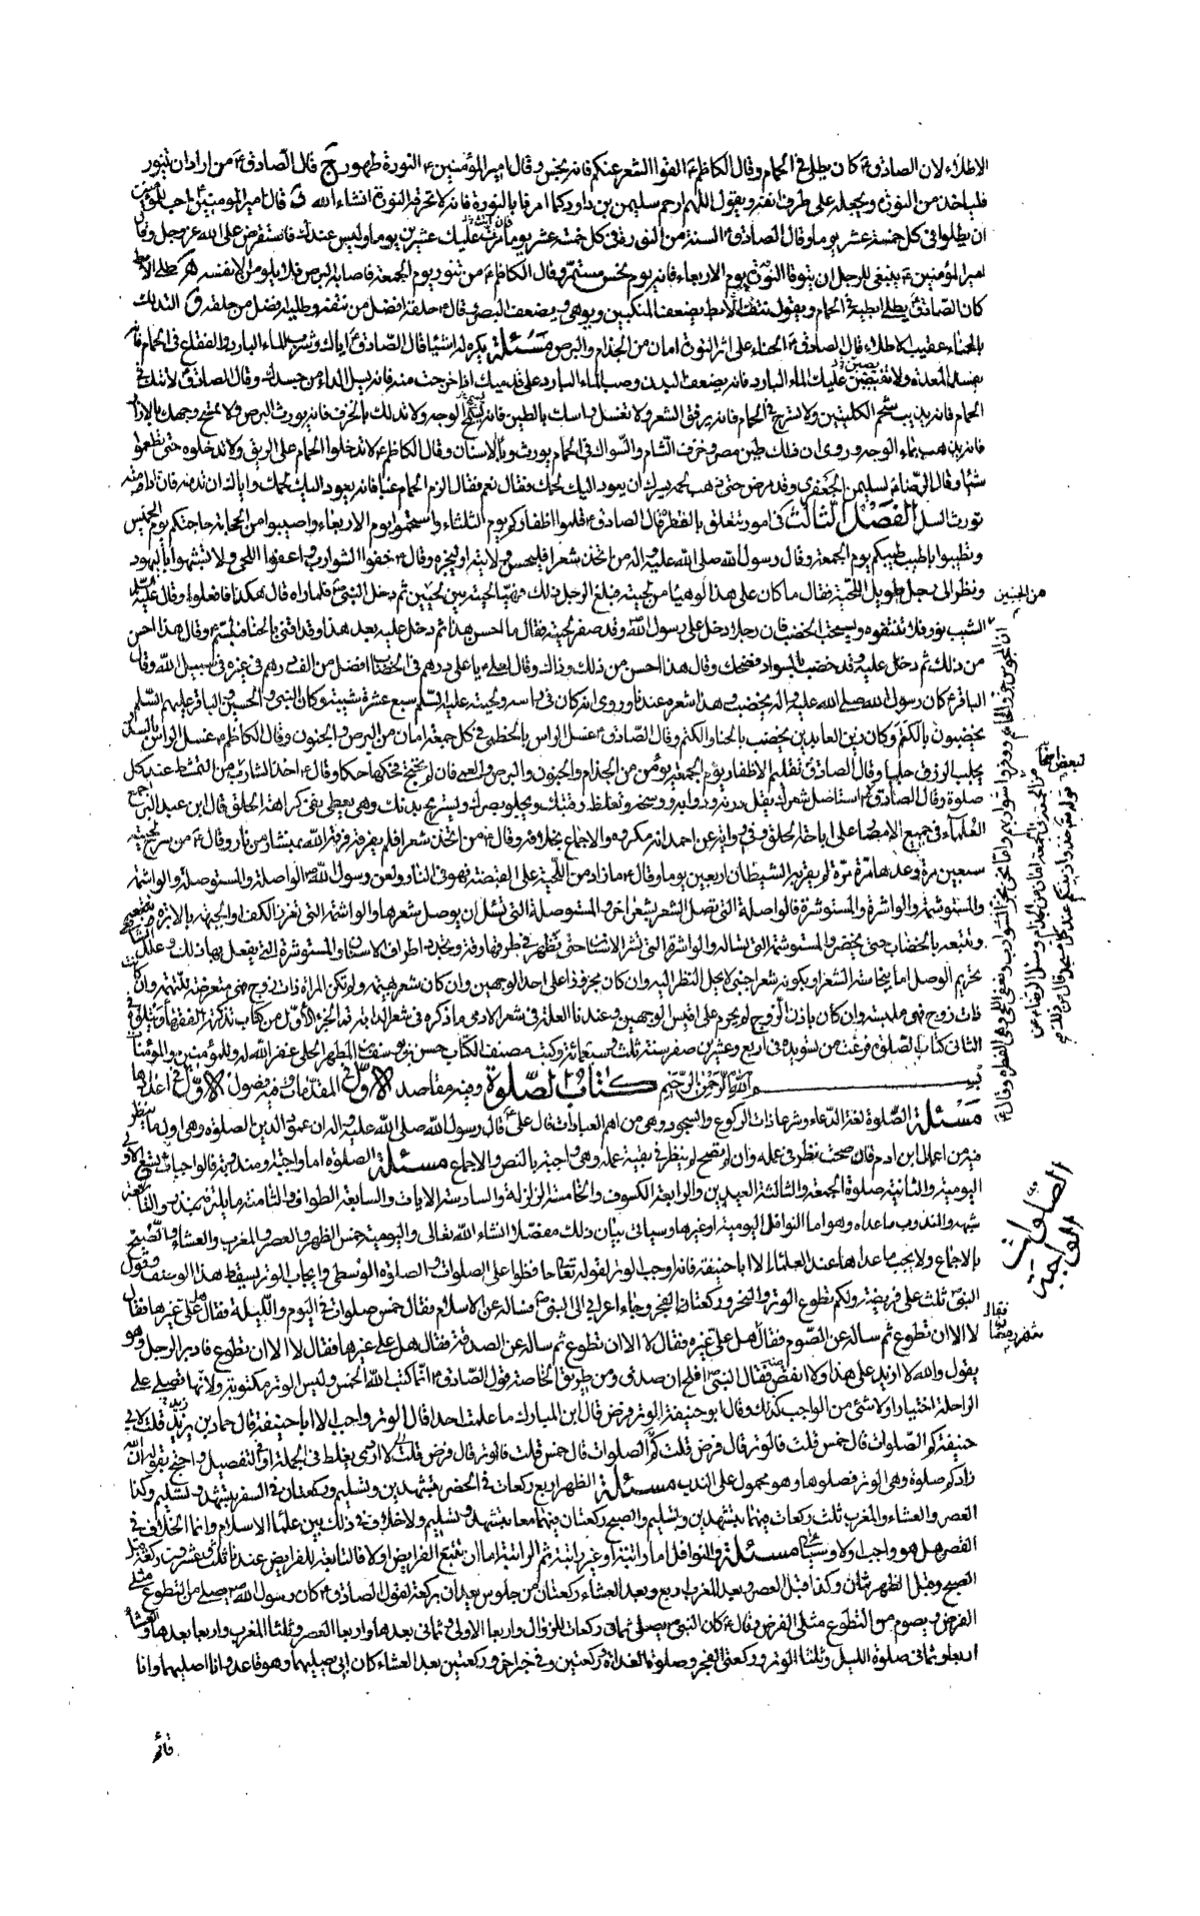 الاطلاء لان الصادق ع كان يطلى فى الحمام وقال الكاظم ع القوا الشعر عنكم فانه يحسن وقال امير المؤمنين ع النورة طهور ج قال الصادق ع من اراد ان يتنور
فلياخذ من النورة ويجعله على طرف انفه ويقول اللهم ارحم سليمن بن داود كما امرنا بالنورة فانه لا تحرقه النورة انشاء الله قال امير المؤمنين ع احب للمؤمنين
ان يطلوا فى كل خمسة عشر يوما وقال الصادق ع السنة من النورة فى كل خمسة عشر يوما فان اتت عليك عشرين يوما وليس عندك فاستقرض على الله عز وجل وقال
امير المؤمنين ع ينبغى للرجل ان يتوقا النورة يوم الاربعاء فانه يوم نحس مستمر وقال الكاظم ع من تنور يوم الجمعة فاصابه البرص فلا يلومن الا نفسه طلى الابط
كان الصادق ع يطلى ابطيه فى الحمام ويقول نتف الابط يضعف المنكبين ويوهى ويضعف البصر وقال ع حلقه افضل من نتفه وطليه افضل من حلقه التدلك
بالحناء عقيب الاطلاء قال الصادق ع الحناء على اثر النورة امان من الجذام والبرص مسئلة يكره له اشيا قال الصادق ع اياك وشرب الماء البارد والفقاع فى الحمام فانه
يفسد المعدة ولا تفيضن عليك الماء البارد فانه يضعف البدن وصب الماء البارد على قدميك اذا خرجت منه فانه يسل الداء من جسدك وقال الصادق ع لا تتك فى
الحمام فانه يذيب شحم الكليتين ولا تسرح فى الحمام فانه يرقق الشعر ولا تغسل راسك بالطين فانه يسمج الوجه ولا تدلك بالخزف فانه يورث البرص ولا تمسح وجهك بالازار
فانه يذهب بماء الوجه وروى ان ذلك طين مصر وخزف الشام والسواك فى الحمام يورث وباء الاسنان وقال الكاظم ع لا تدخلوا الحمام على الريق ولا تدخلوه حتى تطعموا
شيئا وقال الرضا ع لسليمن الجعفرى وقد مرض حتى ذهب لحمه ايسرك ان يعود اليك لحمك فقال نعم فقال الزم الحمام غبا فانه يعود اليك لحمك واياك ان تدمنه فان ادمانه
تورث السل الفصل الثالث فى امور تتعلق بالفطرة قال الصادق ع قلموا اظفاركم يوم الثلثاء واستحموا يوم الاربعاء واصيبوا من الحجامة حاجتكم يوم الخميس
وتطيبوا باطيب طيبكم يوم الجمعة وقال رسول الله صلى الله عليه واله من اتخذ شعرا فليحسن ولايته او ليجزه وقال ع حفوا الشوارب واعفوا اللحى ولا تشبهوا باليهود
ونظر الى رجل طويل اللحية فقال ما كان على هذا لو هيا من لحيته فبلغ الرجل ذلك فهيا لحيته بين لحيتين ثم دخل النبى ع فلما راه قال هكذا فافعلوا وقال عليه السلم
الشيب نور فلا تنتفوه ويستحب الخضب فان رجلا دخل على رسول الله وقد صفر لحيته فقال ما احسن هذا ثم دخل عليه بعد هذا وقد اقنى بالحنا فتبسم وقال هذا احسن
من ذلك ثم دخل عليه وقد خضب بالسواد فضحك وقال هذا احسن من ذلك وذاك وقال لعلى ع يا على درهم فى الخضاب افضل من الف درهم فى غيره فى سبيل الله وقال
الباقر ع كان رسول الله صلى الله عليه واله يخضب وهذا شعره عندنا وروى انه كان فى راسه ولحيته عليه السلم سبع عشرة شيبة وكان النبى والحسين والباقر عليهم السلم
يخضبون بالكتم وكان زين العابدين يخضب بالحنا والكتم وقال الصادق ع غسل الراس بالخطمى فى كل جمعة امان من البرص والجنون وقال الكاظم ع غسل الراس بالسدر
يجلب الرزق جلبا وقال الصادق ع تقليم الاظفار يوم الجمعة يؤمن من الجذام والجنون والبرص والعمى فان لم تحتج فحكها حكا وقال ع اخذ الشارب من التمشط عند كل
صلوة وقال الصادق ع استاصل شعرك يقل درنه ودوابه ووسخه وتغلظ رقبتك ويجلو بصرك ويستريح بدنك وهى يعطى نفى كراهة الحلق قال ابن عبد البر اجمع
العلماء فى جميع الامصار على اباحة الحلق وفى رواية عن احمد انه مكروه والاجماع بخلافه وقال ع من اتخذ شعرا فلم يفرقه فرقه الله بمنشار من نار وقال ع من سرح لحيته
سبعين مرة وعدها مرة مرة لم يقربه الشيطان اربعين يوما وقال ع ما زاد من اللحية على القبضة فهو فى النار ولعن رسول الله الواصلة والمستوصلة والواشمة
والمستوشمة والواشرة والمستوشرة فالواصلة التى تصل الشعر بشعر اخر والمستوصلة التى تسئل ان يوصل شعرها والواشمة التى تغرز الكف او الجبهة بالابرة
وتتبعه بالخضاب حتى يخضر والمستوشمة التى يساله والواشرة التى تنشر الاسنان حتى تظهر فى طرفها رقة وتحدد اطراف الاسنان والمستوشرة التى يفعل بها ذلك وعلة
تحريم الوصل اما نجاسة الشعر او بكونه شعر اجنبى لا يحل النظر اليه وان كان مجردا على احد الوجهين وان كان شعر بهيمة ولم تكن المراة ذات زوج فهى متعرضة للتهمة وان كانت
ذات زوج فهى ملبسة وان كان باذن الزوج لم يحرم على اقيس الوجهين وعندنا العلة فى شعر الادمى ما ذكره فى شعر الدابة تم الجزء الاول من كتاب تذكرة الفقهاء ويتلوه فى
الثانى كتاب الصلوة فرغت من تسويده فى اربع وعشرين صفر سنة ثلث وسبعمائة وكتب مصنف الكتاب حسن بن يوسف بن المطهر الحلى غفر الله له وللمؤمنين والمؤمنات
بسم الله الرحمن الرحيم كتاب الصلوة وفيه مقاصد الاول فى المقدمات وفيه فصول الاول فى اعدادها
مسئلة الصلوة لغة الدعاء وشرعا ذات الركوع والسجود وهى من اهم العبادات قال على ع قال رسول الله صلى الله عليه واله ان عمود الدين الصلوة وهى اول ما ينظر
فيه من اعمال ابن ادم فان صحت نظر فى عمله وان لم تصح لم ينظر فى بقية عمله وهى واجبة بالنص والاجماع مسئلة الصلوة اما واجبة او مندوبة فالواجبات تسع الاولى
اليومية والثانية صلوة الجمعة والثالثة العيدين والرابعة الكسوف والخامسة الزلزلة والسادسة الايات والسابعة الطواف والثامنة ما يلزم بنذر والتاسعة
شبهه والمندوب ما عداه وهو اما النوافل اليومية او غيرها وسياتى بيان ذلك مفصلا انشاء الله تعالى واليومية خمس الظهر والعصر والمغرب والعشاء والصبح
بالاجماع ولا يجب ما عداها عند العلماء الا ابا حنيفة فانه اوجب الوتر لقوله تعالى حافظوا على الصلوات والصلوة الوسطى وايجاب الوتر يسقط هذا الوصف وقول
النبى ص ثلث على فريضة ولكم تطوع الوتر والنحر وركعتا الفجر وجاء اعرابى الى النبى ص فساله عن الاسلام فقال خمس صلوات فى اليوم والليلة فقال هل على غيرها فقال
لا الا ان تطوع ثم ساله عن الصوم فقال هل على غيره فقال لا الا ان تطوع ثم ساله عن الصدقة فقال هل على غيرها فقال لا الا ان تطوع فادبر الرجل وهو
يقول والله لا ازيد على هذا ولا انقص منه فقال النبى ص افلح ان صدق ومن طريق الخاصة قول الصادق ع انما كتب الله الخمس وليس الوتر مكتوبة ولانها تصلى على
الراحلة اختيارا ولا شئ من الواجب كذلك وقال ابو حنيفة الوتر فرض قال ابن المبارك ما علمت احدا قال الوتر واجب الا ابا حنيفة قال حماد بن زيد قلت لابى
حنيفة كم الصلوات قال خمس قلت فالوتر قال فرض قلت كم الصلوات قال خمس قلت فالوتر قال فرض قلت لا ادرى يغلط فى الجملة او فى التفصيل واحتج بقوله ان الله
زادكم صلوة وهى الوتر فصلوها وهو محمول على الندب مسئلة الظهر اربع ركعات فى الحضر بتشهدين وتسليم وركعتان فى السفر بتشهد وتسليم وكذا
العصر والعشاء والمغرب ثلث ركعات فيهما بتشهدين وتسليم والصبح ركعتان فيهما معا بتشهد وتسليم ولا خلاف فى ذلك بين علماء الاسلام وانما الخلاف فى
القصر هل هو واجب او لا وسياتى مسئلة والنوافل اما راتبة او غير راتبة ثم الراتبة اما ان تتبع الفرايض او لا فالتابعة للفرايض عندنا ثلث وعشرون ركعة قبل
الصبح وقبل الظهر ثمان وكذا قبل العصر وبعد المغرب اربع وبعد العشاء ركعتان من جلوس يعدان بركعة لقول الصادق ع كان رسول الله ص يصلى من التطوع مثلى
الفرض ويصوم من التطوع مثلى الفرض وقال ع كان النبى ص يصلى ثمانى ركعات للزوال واربعا الاولى وثمانى بعدها واربعا العصر وثلثا المغرب واربعا بعدها والعشاء
اربعا وثمانى صلوة الليل وثلثا الوتر وركعتى الفجر وصلوة الغداة ركعتين وفى خبر اخر وركعتين بعد العشاء كان ابى يصليهما وهو قاعد وانا اصليهما وانا
قائم
من الجنبين
الصلوات
الواجبة
شهر رمضان فقال